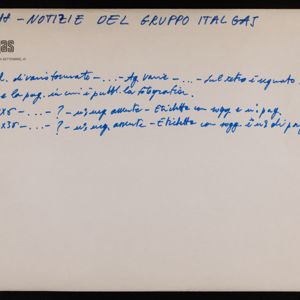 H - NOTIZIE DEL GRUPPO ITALGAS
gas
l. di vario formato - ... - Ag. varie - ... - Sul retro è segnato
e la pag. in cui è pubbl. la fotografia.
x5 - ... - ? - n. neg. assente - Etichetta con sogg. e n. pag.
x35 - ... - ? - n. neg. assente - Etichetta con sogg. e n. di pag